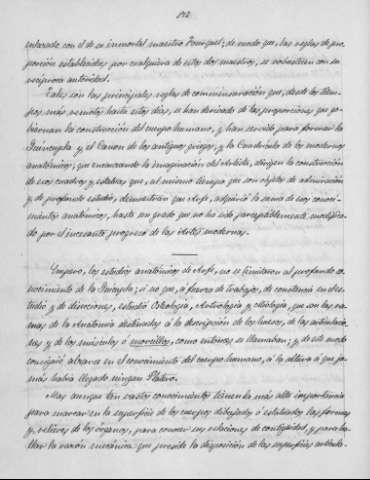 192.
enlazado con el de su inmortal maestro Donyuel; de modo que, las reglas de pro-
porción establecidas por cualquiera de estos dos maestros, se robustecen con su
recíproca autoridad.
Tales son las principales reglas de conmensuración que, desde los tiem-
pos más remotos hasta estos días, se han derivado de las proporciones que go-
biernan la construcción del cuerpo humano, y han servido para formar la
y el Canon de los antiguos griegos, y la Cuadrícula de los modernos
anatómicos, que encauzando la imaginación del Artista, dirigen la construcción
de esos cuadros y estatuas que, al mismo tiempo que son objetos de admiración
y de profundo estudio, demuestran que Arfe, adquirió la suma de esos conoci-
mientos anatómicos, hasta un grado que no ha sido perceptiblemente modifica-
do por el incesante progreso de las Artes modernas.
Empero, los estudios anatómicos de Arfe, no se limitaron al profundo co-
nocimiento de la si no que, a fuerza de trabajo, de constancia en el es-
tudio y de disecciones, estudió Osteología, Artrología y Miología, que son las ra-
mas de la Anatomía destinadas á la descripción de los huesos, de las articulacio-
nes y de los músculos ó morcillos, como entonces se llamaban; y de este modo
consiguió alzarse en el conocimiento del cuerpo humano, á la altura á que ja-
más había llegado ningun Platero.
Mas aunque tan vastos conocimientos tienen la más alta importancia
para marcar en la superficie de los cuerpos dibujados ó esculpidos las formas
y relieves de los órganos, para conocer sus relaciones de contigüidad, y para ha-
llar la razón mecánica que preside la disposición de las superficies articula-